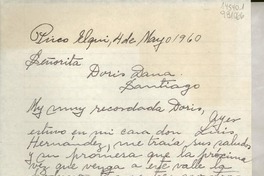 Pisco Elqui, 4 de Mayo 1960
Señorita
Doris Dana
Santiago
My muy recordada Doris, Ayer
estuvo en mi casa don Luis
Hernandez, me traia sus saludos
y un promesa que la próxima
vez que venga a este valle la